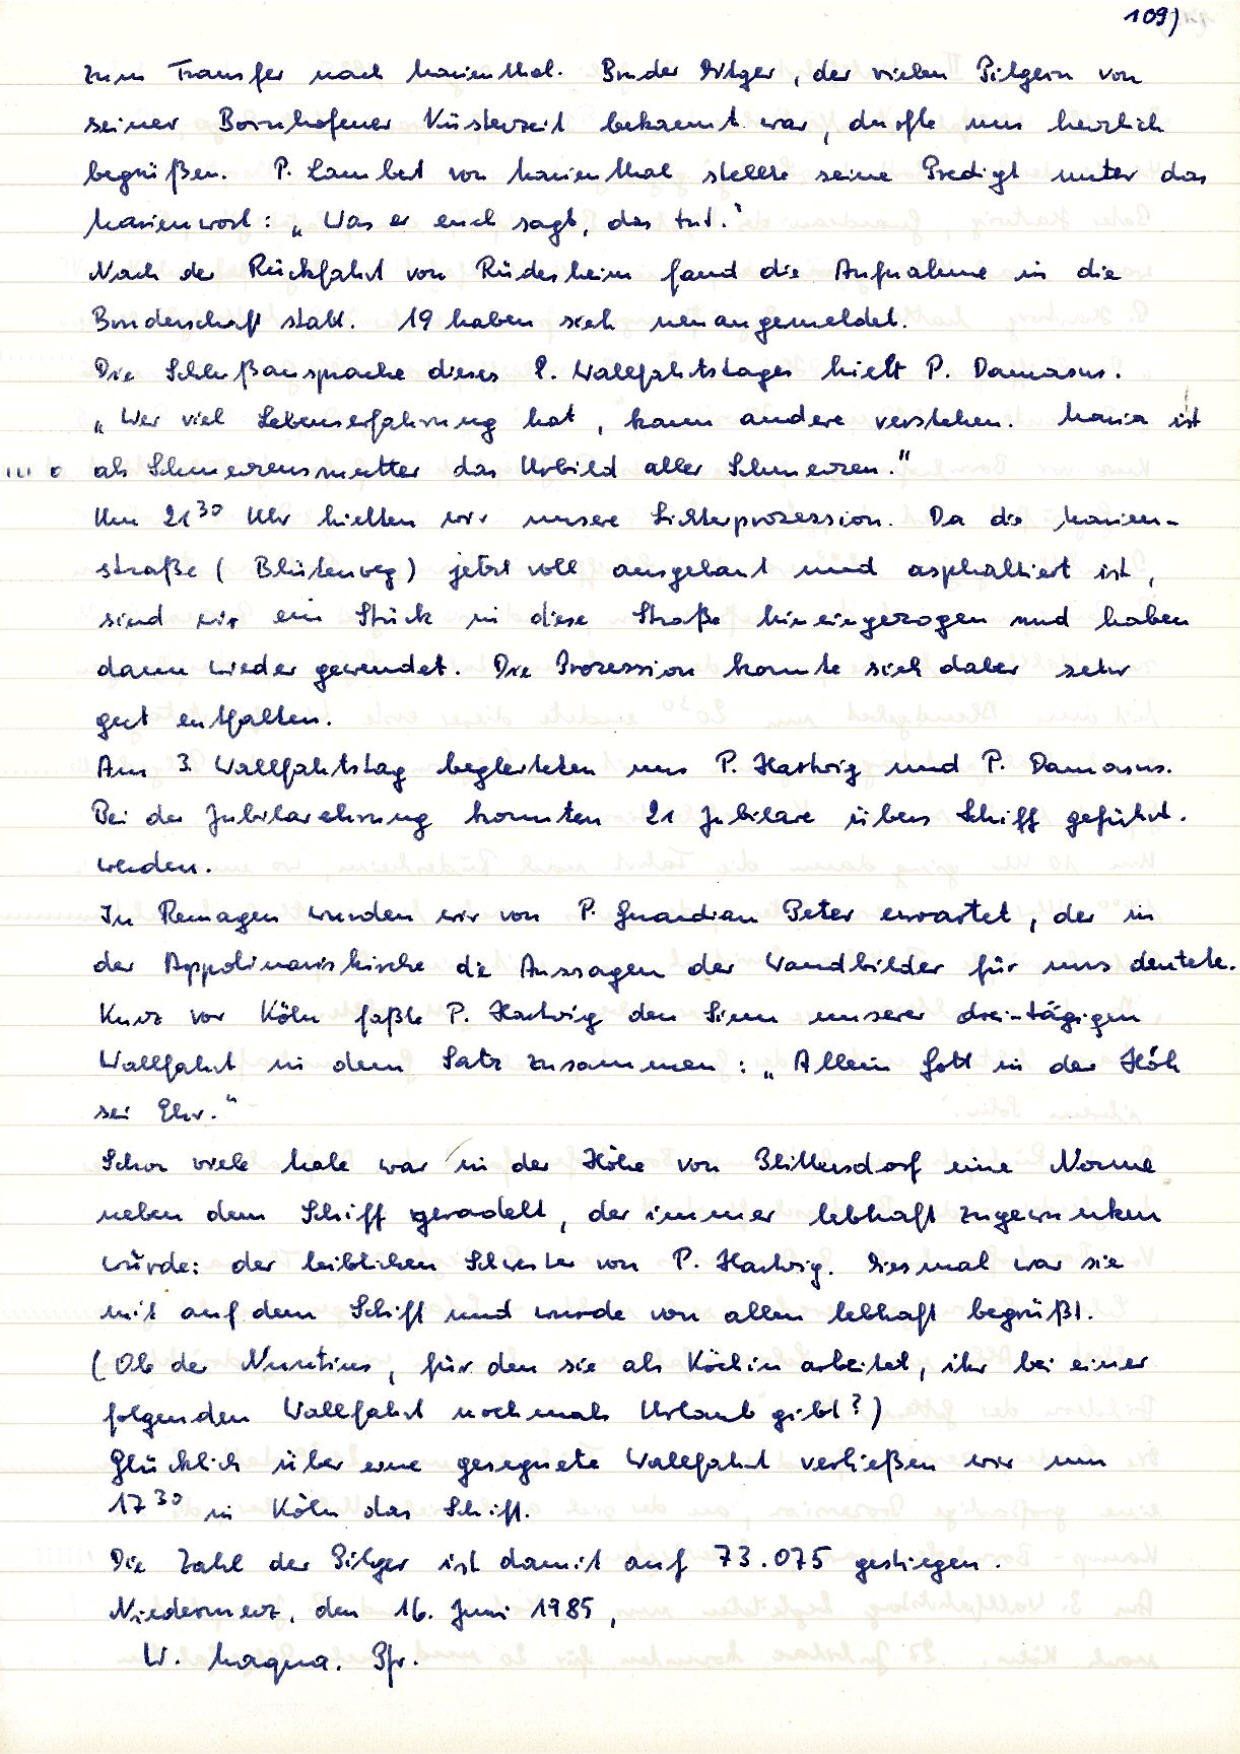 109)
zum Transfer nach Marienthal. Bruder Hilger, der vielen Pilgern von
seiner Bornhofener Küsterzeit bekannt war, durfte uns herzlich
begrüßen. P. Lambert von Marienthal stellte seine Predigt unter das
Marienwort: „Was er euch sagt, das tut."
Nach der Rückfahrt von Rüdesheim fand die Aufnahme in die
Bruderschaft statt. 19 haben sich neu angemeldet.
Die Schlußansprache dieses 2. Wallfahrtstages hielt P. Damasus.
„Wer viel Lebenserfahrung hat, kann andere verstehen. Maria ist
als Schmerzensmutter das Urbild aller Schmerzen."
Um 21³⁰ Uhr hielten wir unsere Lichterprozession. Da die Marien-
straße (Blütenweg) jetzt voll ausgebaut und asphaltiert ist,
sind wir ein Stück in diese Straße hineingezogen und haben
dann wieder gewendet. Die Prozession konnte sich daher sehr
gut entfalten.
Am 3. Wallfahrtstag begleiteten uns P. Hartwig und P. Damasus.
Bei der Jubilarehrung konnten 21 Jubilare übers Schiff geführt.
werden.
In Remagen wurden wir von P. Guardian Peter erwartet, der in
der Appolinariskirche die Aussagen der Wandbilder für uns deutete.
Kurz vor Köln faßte P. Hartwig den Sinn unserer drei-tägigen
Wallfahrt in dem Satz zusammen: „Allein Gott in der Höh
sei Ehr."
Schon viele Male war in der Höhe von Blittersdorf eine Nonne
neben dem Schiff geradelt, der immer lebhaft zugewunken
wurde: der leiblichen Schwester von P. Hartwig. Diesmal war sie
mit auf dem Schiff und wurde von allen lebhaft begrüßt.
(Ob der Nuntius, für den sie als Köchin arbeitet, ihr bei einer
folgenden Wallfahrt nochmals Urlaub gibt?)
Glücklich über eine gesegnete Wallfahrt verließen wir um
17³⁰ in Köln das Schiff.
Die Zahl der Pilger ist damit auf 73.075 gestiegen.
Niedermerz, den 16. Juni 1985,
W. Maqua. Pfr.